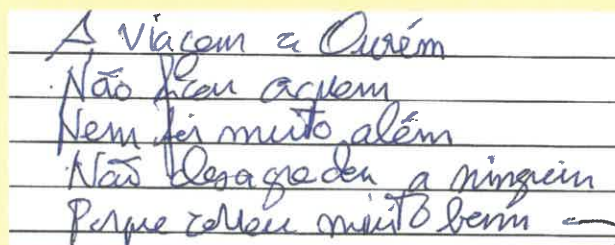 A viagem a Ourém
Não ficou aquem
Nem foi muito além
Não desagradou a ninguem
Porque correu muito bem